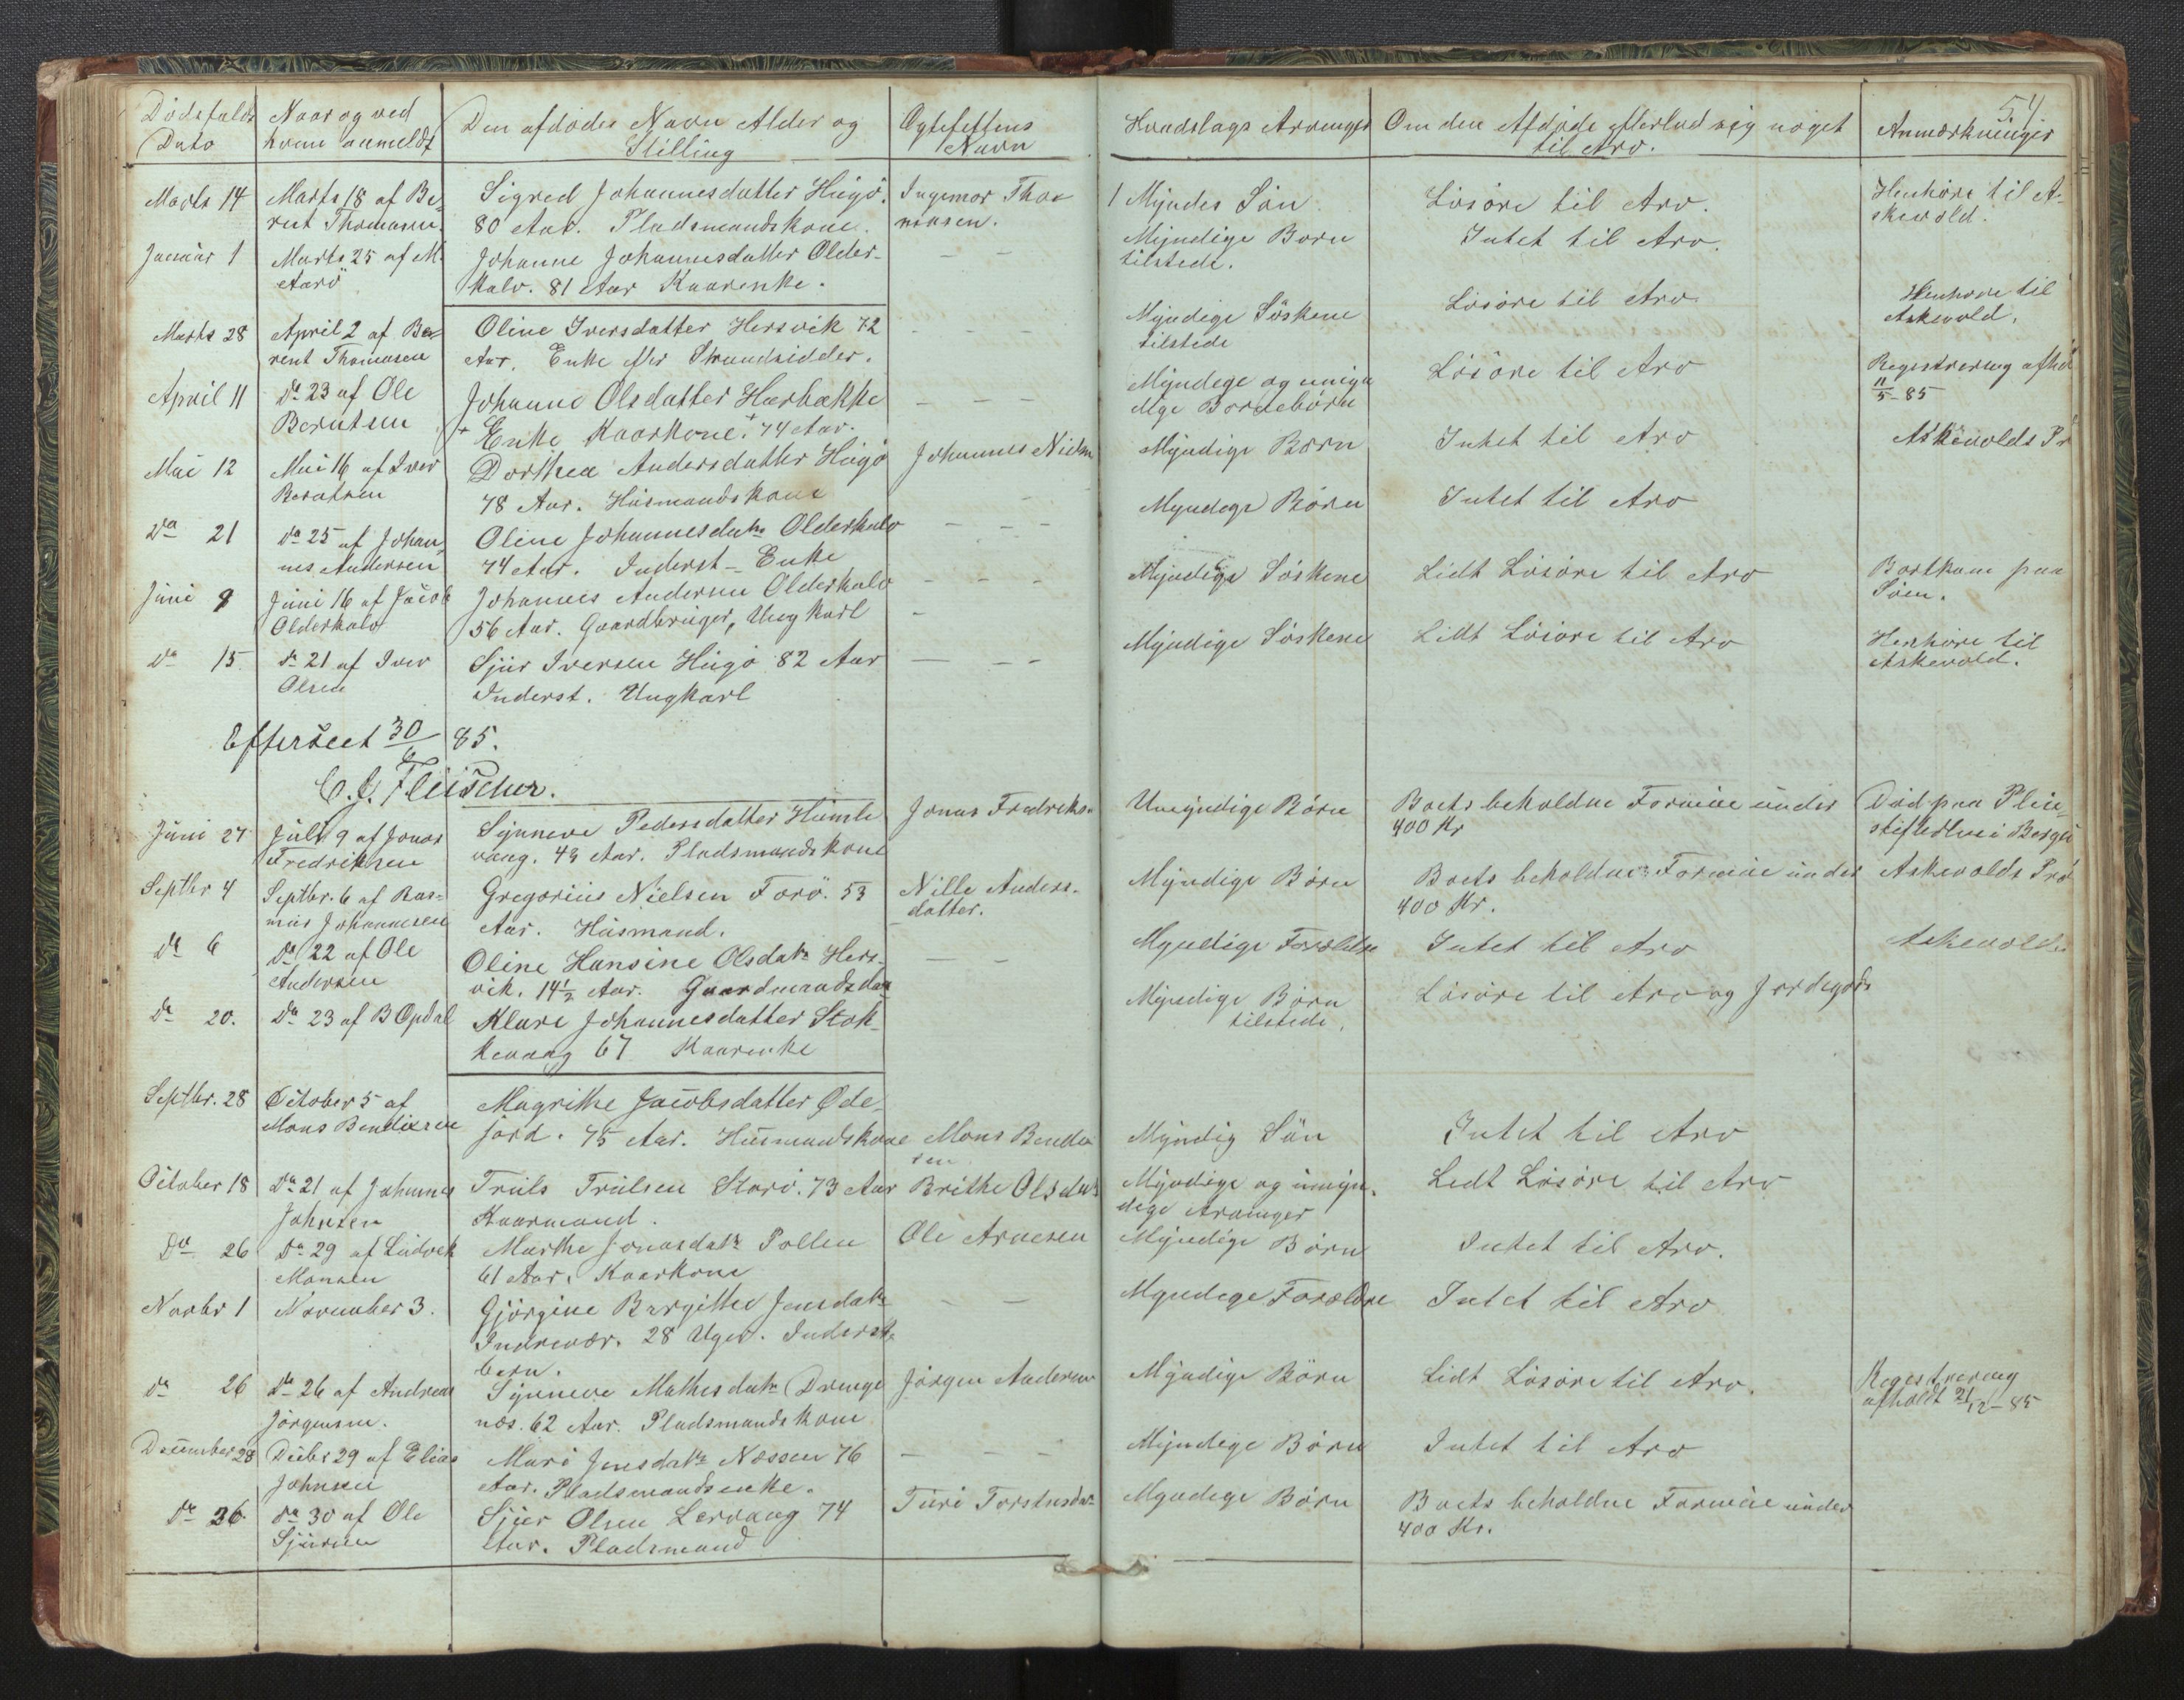 54
Dødsfalds Dato | Naar og ved hvem anmeldt | Den afdødes Navn Alder og Stilling | Egtefellens Navn | Hvadslags Arvinger | Om den Afdøde efterlod sig noget til Arv. | Anmærkninger
Marts 14 | Marts 18 af Berent Thomasen. | Sigred Johannesdatter Hugø. 80 Aar. Pladsmandskone. | Ingemar Thomasen. | 1 Myndig Søn. | Løsøre til Arv. | Henhøre til Askevold.
Januar 1 | Marts 25 af M. Aarø | Johanne Johannesdatter Olderkalv. 81 Aar Kaarenke. | — — | Myndige Børn tilstede. | Intet til Arv.
Marts 28 | April 2 af Berent Thomasen | Oline Iversdatter Hersvik 72 Aar. Enke efter Strandsidder. | — — — | Myndige Søskene tilstede | Løsøre til Arv | Henhøre til Askevold.
April 11 | Do 23 af Ole Berntsen | Johanne Olsdatter Hærbakke + Enke Kaarkone. + 74 Aar. | — — — | Myndege og umyndige Børnebørn | Løsøre til Arv | Registrering afhol 11/5-85
Mai 12 | Mai 16 af Iver Berntsen | Dorthea Andersdatter Hugø 78 Aar. Husmandskone | Johannes Nielsen | Myndige Børn | Intet til Arv | Askevolds Pr
Do 21 | Do 25 af Johannes Andersen | Oline Johannesdatr Olderkalv 74 Aar. Inderst-Enke | — — — | Myndege Børn | Intet til Arv
Juni 9 | Juni 16 af Jacob Olderkalv | Johannes Andersen Olderkalv 56 Aar. Gaardbruger, Ungkarl | — — — | Myndige Søskene | Lidt Løsøre til Arv | Bortkom paa Søen.
Do 15 | Do 21 af Iver Olsen | Sjur Iversen Hugø 82 Aar Inderst. Ungkarl | — — — | Myndige Søskene | Lidt Løsøre til Arv | Henhøre til Askevold.
Efterseet 30/6 85.
C. J. Fleischer.
Juni 27 | Juli 9 af Jonas Fredriksen | Synneve Pedersdatter Humlevaag. 43 Aar. Pladsmandskone | Jonas Fredriksen | Umyndige Børn | Boets beholdne Formue under 400 Kr | Død paa Pleiestiftelsen i Bergen
Septbr 4 | Septbr. 6 af Rasmus Johannesen | Gregorius Nielsen Færø. 53 Aar. Husmand. | Nille Andersdatter. | Myndige Børn | Boets beholdne Formue under 400 Kr. | Askevolds Præ
do 6 | Do 22 af Ole Andersen | Oline Hansine Olsdatr Hersvik. 14½ Aar. Gaardmandsdatr | — — | Myndige Forældre | Intet til Arv | Askevolds
do 20. | Do 23 af B Opdal | Klare Johannesdatter Stokkevaag 67 Kaarenke | Myndige Børn tilstede. | Løsøre til Arv og Jordegods
Septbr. 28 | October 5 af Mons Bendixsen | Magrithe Jacobsdatter Ødejord. 75 Aar. Husmandskone | Mons Bendixsen | Myndig Søn | Intet til Arv
October 18 | Do 21 af Johannes Johnsen | Truls Trulsen Karø. 73 Aar Kaarmand. | Brithe Olsdatr | Myndige og umyndige Arvinger | Lidt Løsøre til Arv
Do 26 | Do 29 af Ludvik Monsen | Marthe Jonasdatr Pollen 61 Aar. Kaarkone | Ole Arnesen | Myndige Børn | Intet til Arv.
Novbr 1 | November 3. | Gjørgine Bergitte Jensdatr Indrevær. 28 Uger. Inderstbarn. | — — | Myndege Forældre | Intet til Arv
do 26 | Do 26 af Andreas Jørgensen. | Synneve Mathisdatr Drengenes. 62 Aar. Pladsmandskone | Jørgen Andersen | Myndige Børn | Lidt Løsøre til Arv. | Registrering afholdt 21/12-85
December 28 | Decbr 29 af Elias Johnsen | Mari Jensdatr Næssen 76 Aar. Pladsmandsenke. | — — — | Myndige Børn | Intet til Arv
do 26 | Do 30 af Ole Sjursen | Sjur Olsen Lervaag 74 Aar. Pladsmand | Turi Torstensdatr | Myndige Børn | Boets beholdne Formue under 400 Kr.